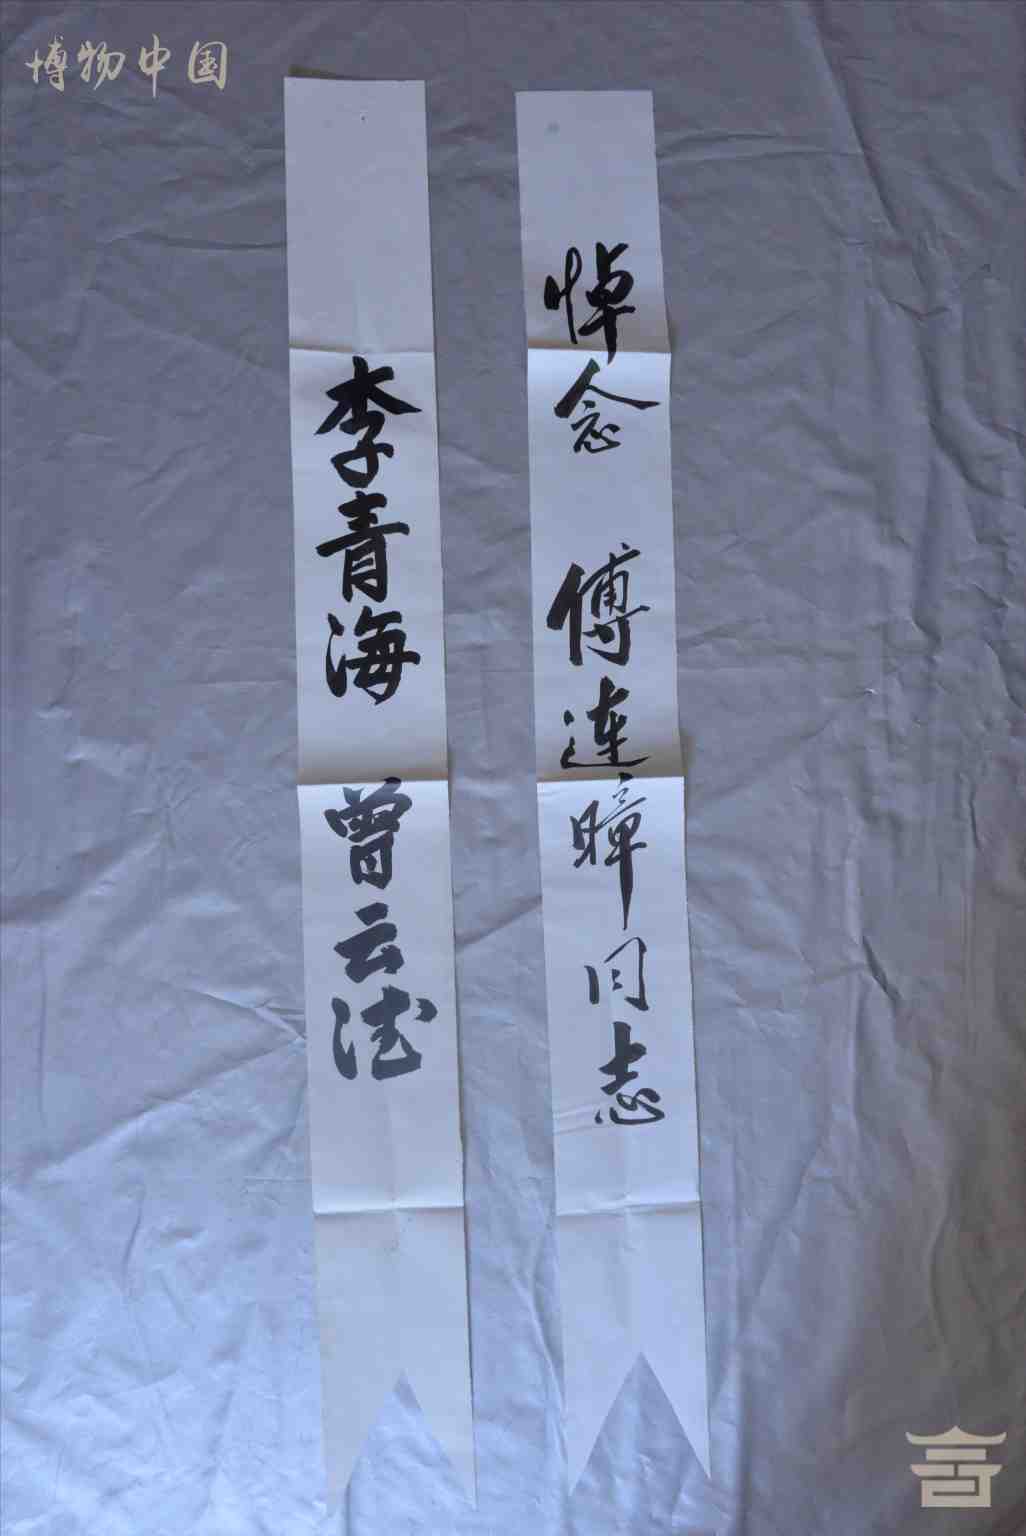 博物中国
悼念 傅连暲同志
李青海 曾云